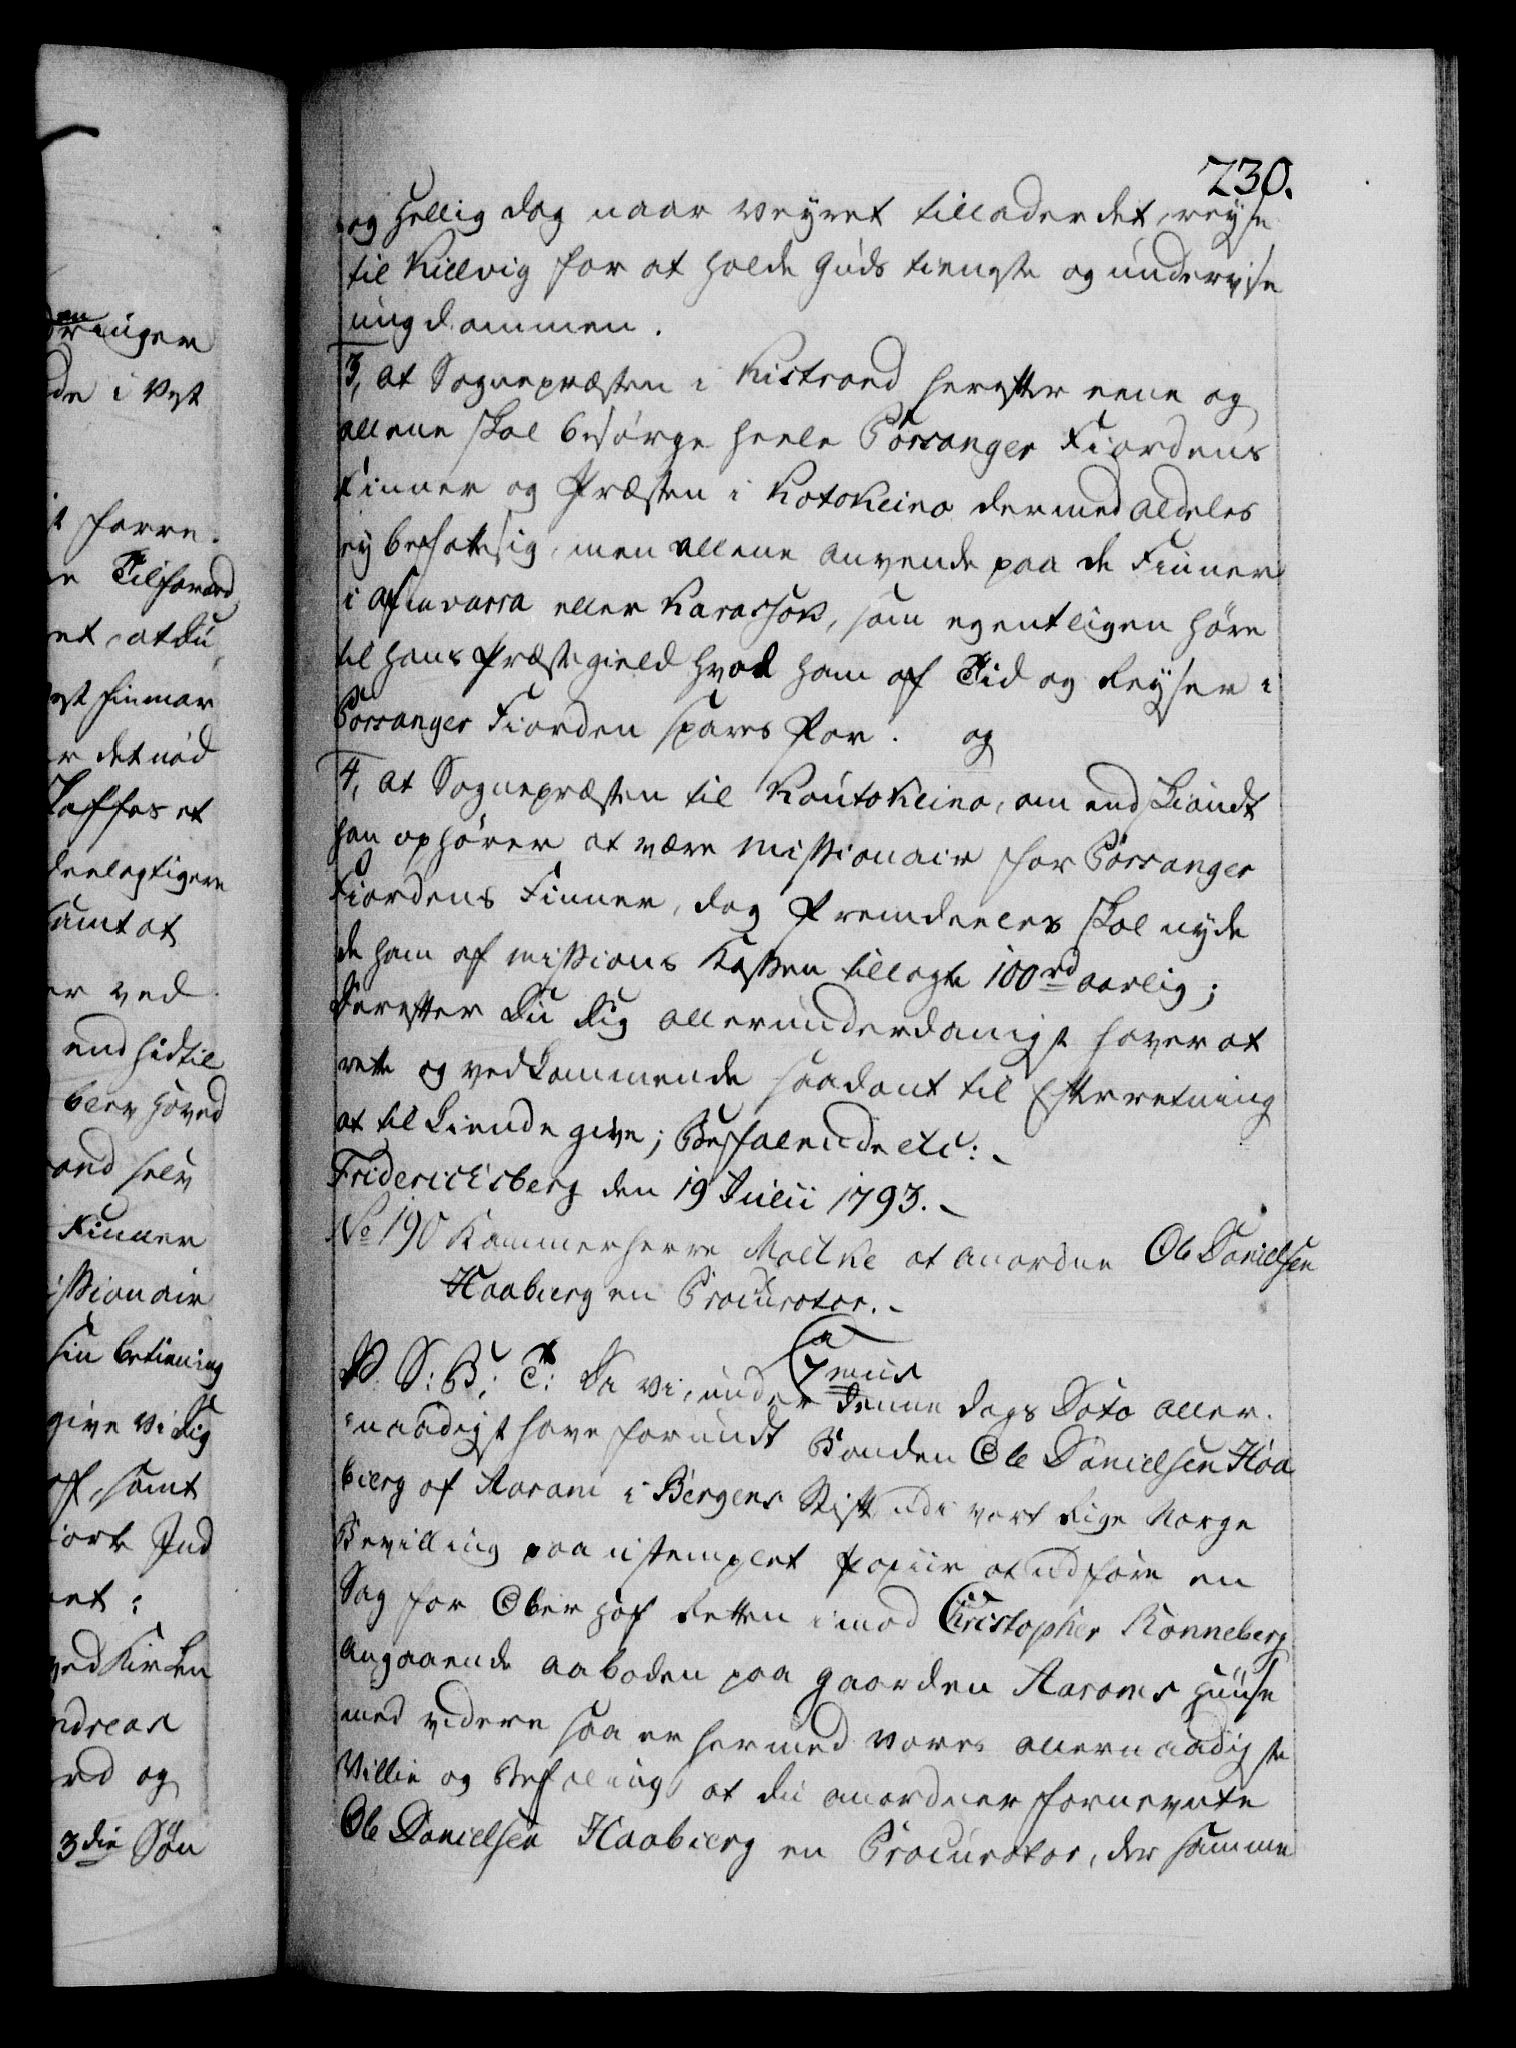 730.
og Hellig Dag naar Veyret tillader det, reyse
til Killvig for at holde Guds tieneste og underviise
ungdommen.
3, at Sognepræsten i Kistrand herefter eene og
allene skal besørge heele Porsanger Fiordens
Finner og Præsten i Kotokeino dermed aldeles
ey befatte sig, men allene anvende paa de Finner
i Afiuvarra eller Karassjok, som egentligen høre
til hans Præstegield hvad ham af Tid og Reyser i
Porsanger Fiorden spares for. og
4, at Sognepræsten til Koutokeino, om endskiøndt
han ophører at være Missionair for Porsanger
Fiordens Finner, dog fremdeeles skal nyde
de ham af Missions Kassen tillagte 100 rd aarlig;
Derefter Du Dig allerunderdanigst haver at
rette og vedkommende saadant til Efterretning
at tilkiende give; Befalende etc:
Fridericksberg den 19 Julii 1793.
No 190 Kammerherre Moltke at anordne Ole Danielsen
Haabierg en Procurator.
P. S: B: T: Da vi, under denne Dags Dato aller-
naadigst have forundt Bonden Ole Danielsen Haa
bierg af Aaram i Bergens Stift udi vort Rige Norge
Bevilling paa ustemplet Papiir at udføre en
Sag for Ober Hof Retten imod Christopher Rønneberg
angaaende Aaboden paa Gaarden Aarams Huuse
med videre saa er hermed vores allernaadigste
Villie og Befaling, at du anordner fornevnte
Ole Danielsen Haabierg en Procurator, der samme